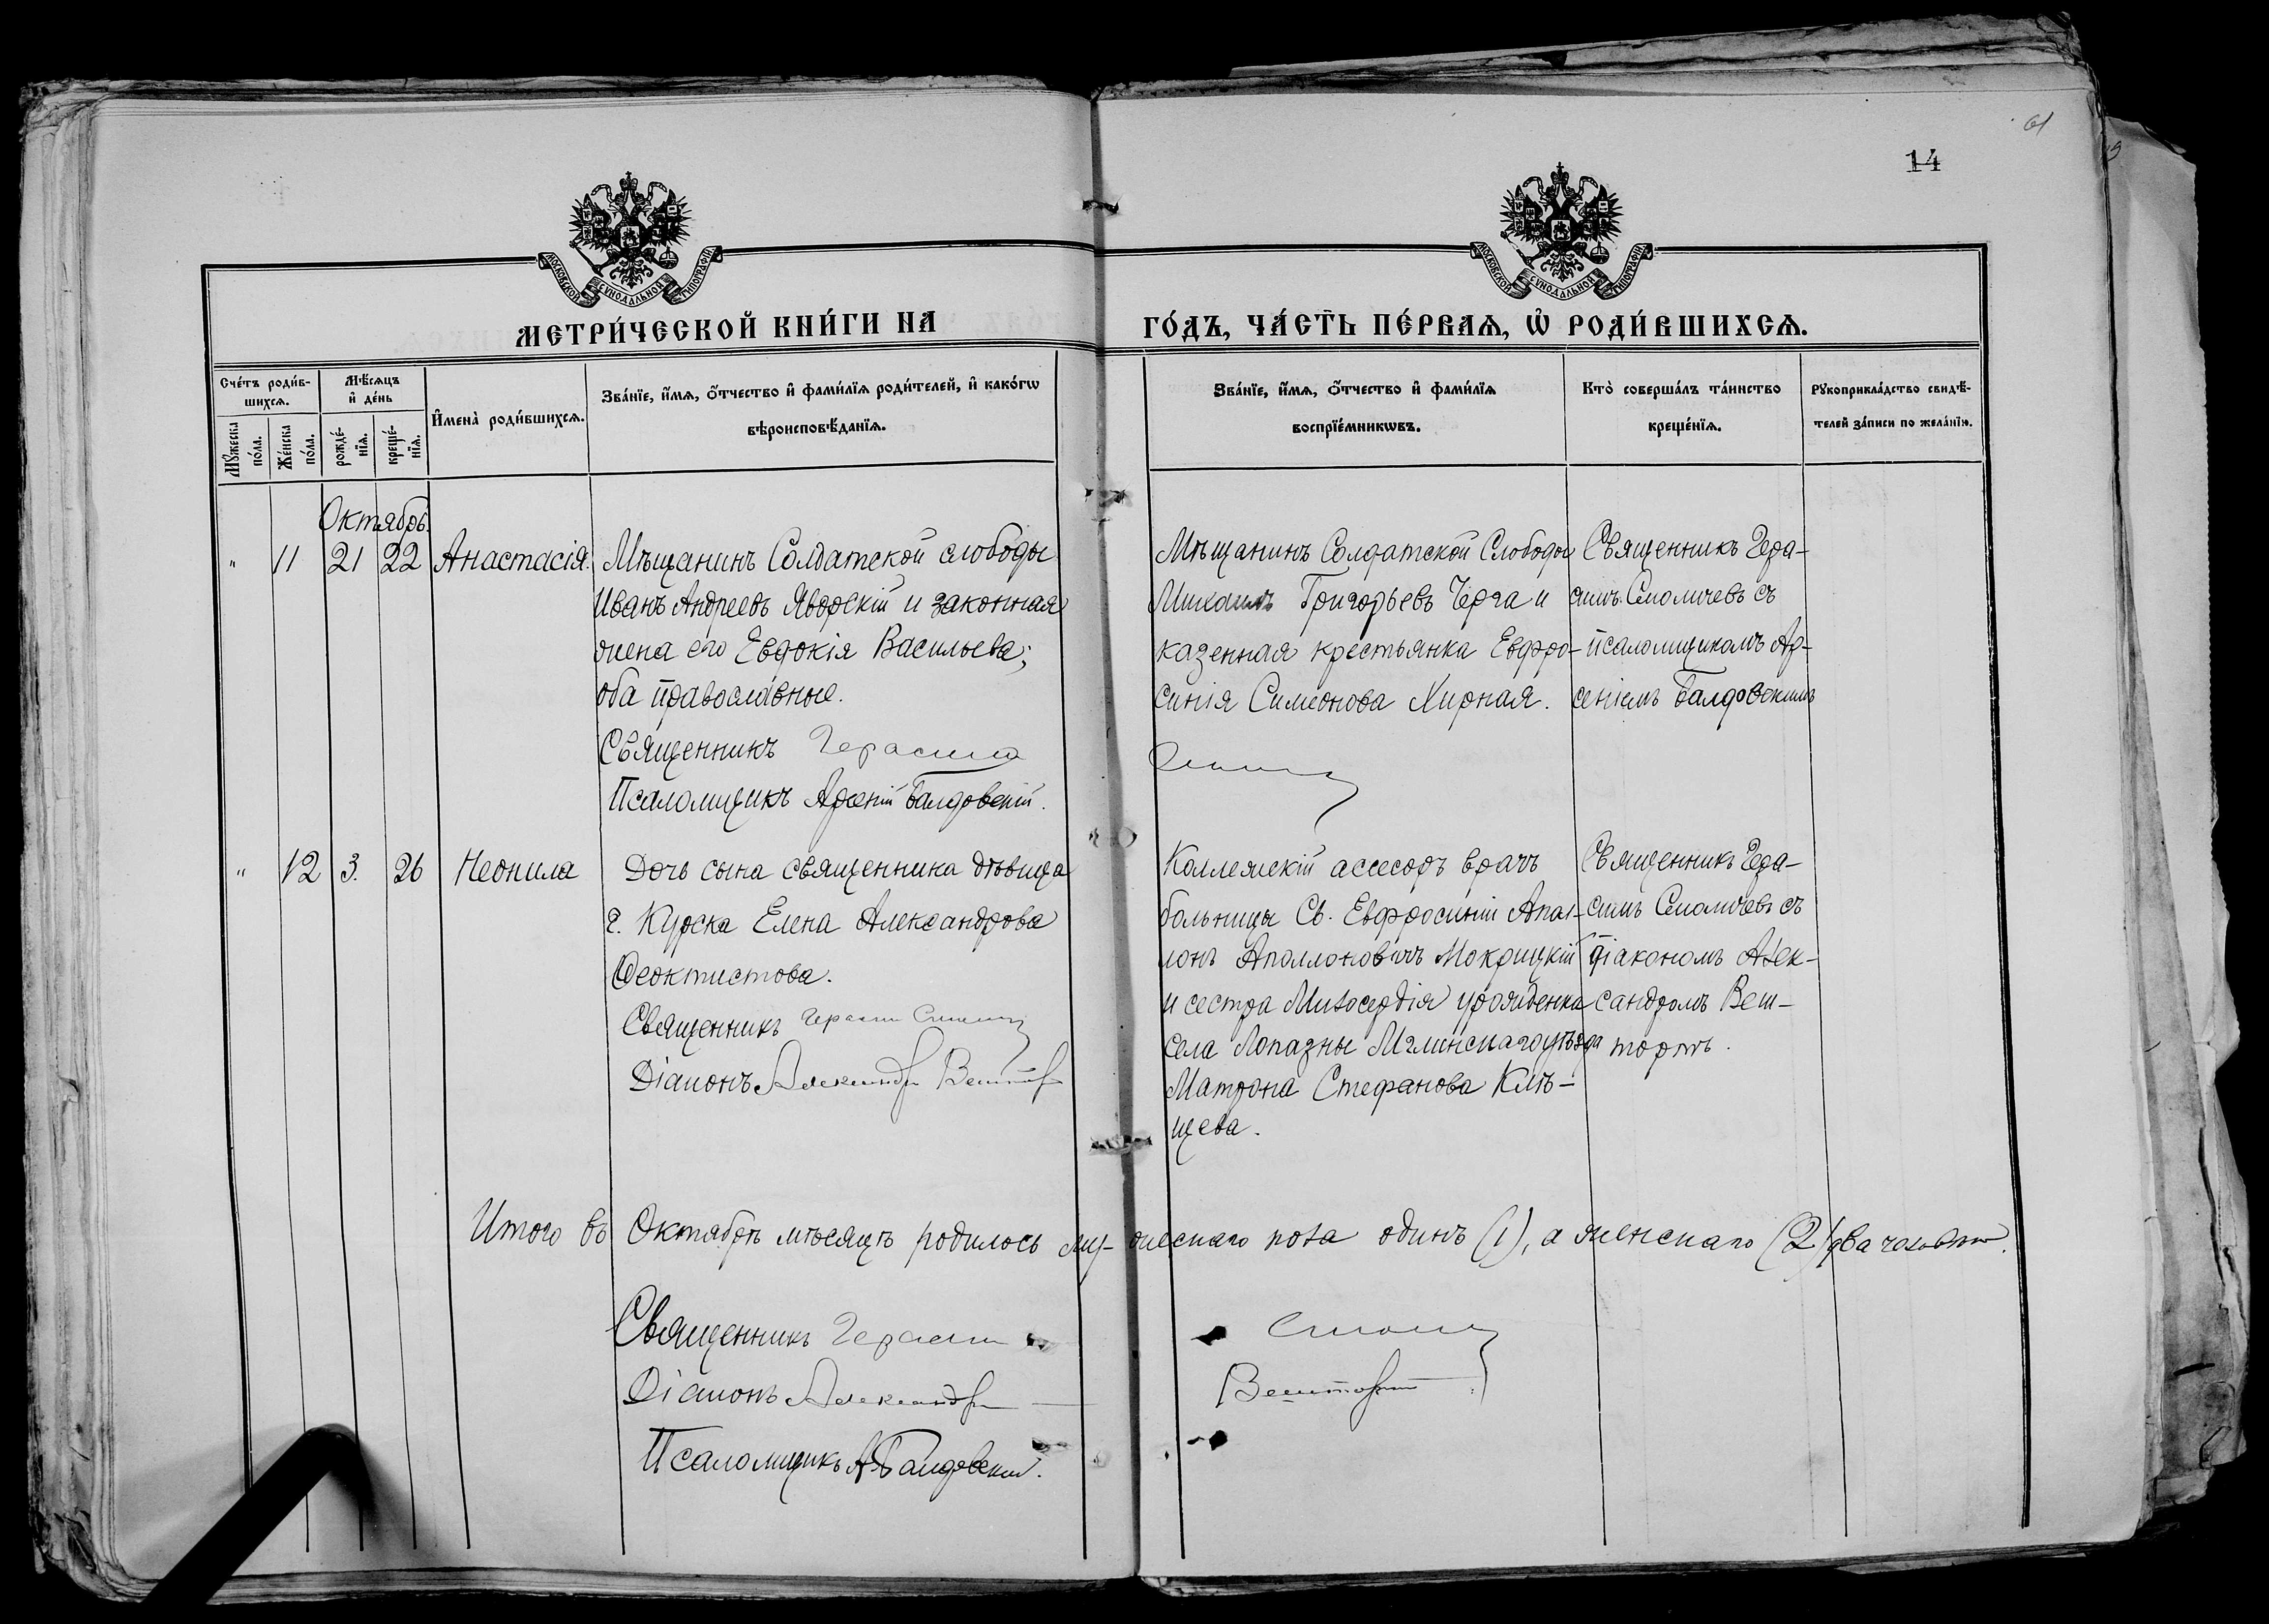 61
14
МОСКОВСКОЙ СѴНОДАЛЬНОЙ ТИПОГРАФІИ
МОСКОВСКОЙ СѴНОДАЛЬНОЙ ТИПОГРАФІИ
МЕТРИ́ЧЕСКОЙ КНИ́ГИ НА
ГО́ДЪ, ЧА́СТЬ ПЕ́РВАѦ, Ѡ҆ РОДИ́ВШИХСѦ.
Сче́тъ роди́в-
шихсѧ.
Мѣ́сѧцъ
и҆ де́нь
Мꙋ́жеска
по́ла.
Же́нска
по́ла.
рожде́-
нїѧ.
креще́-
нїѧ.
И҆мена̀ роди́вшихсѧ.
Зва́нїе, и҆́мѧ, ѻ҆́тчество и҆ фами́лїѧ роди́телей, и҆ како́гѡ
вѣроисповѣ́данїѧ.
Зва́нїе, и҆́мѧ, ѻ҆́тчество и҆ фами́лїѧ
воспрїе́мникѡвъ.
Кто̀ соверша́лъ та́инство
креще́нїѧ.
Рꙋкоприкла́дство свидѣ́-
телей за́писи по жела́нїю.
Октябрь.
" 11 21 22 Анастасія.
Мѣщанинъ Солдатской слободы
Иванъ Андреевъ Яворскій и законная
жена его Евдокія Васильева;
оба православные.
Священникъ Герасимъ
Псаломщикъ Арсеній Балдовскій.
Мѣщанинъ Солдатской Слободы
Михаилъ Григорьевъ Черга и
казенная крестьянка Евфро-
синія Симеонова Жирная.
Священникъ Гера-
симъ Смоличевъ съ
псаломщикомъ Ар-
сеніемъ Балдовскимъ
" 12 3. 26 Неонила
Дочь сына священника дѣвица
г. Курска Елена Александрова
Ѳеоктистова.
Священникъ Герасим
Діаконъ Александръ
Коллежскій ассесоръ врачъ
больницы Св. Евфросиніи Апол-
лонъ Аполлоновичъ Мокрицкій
и сестра Милосердія урожденка
села Лопазны Мглинскаго уѣзда
Матрона Стефанова Клѣ-
щева.
Священникъ Гера-
симъ Смоличевъ съ
діакономъ Алек-
сандромъ Веш-
тортъ.
Итого въ Октябрѣ мѣсяцѣ родилось му- жескаго пола одинъ (1), а женскаго (2) два человѣка.
Священникъ Герасим
Діаконъ Александръ Вешторт
Псаломщикъ А. Балдовскій.